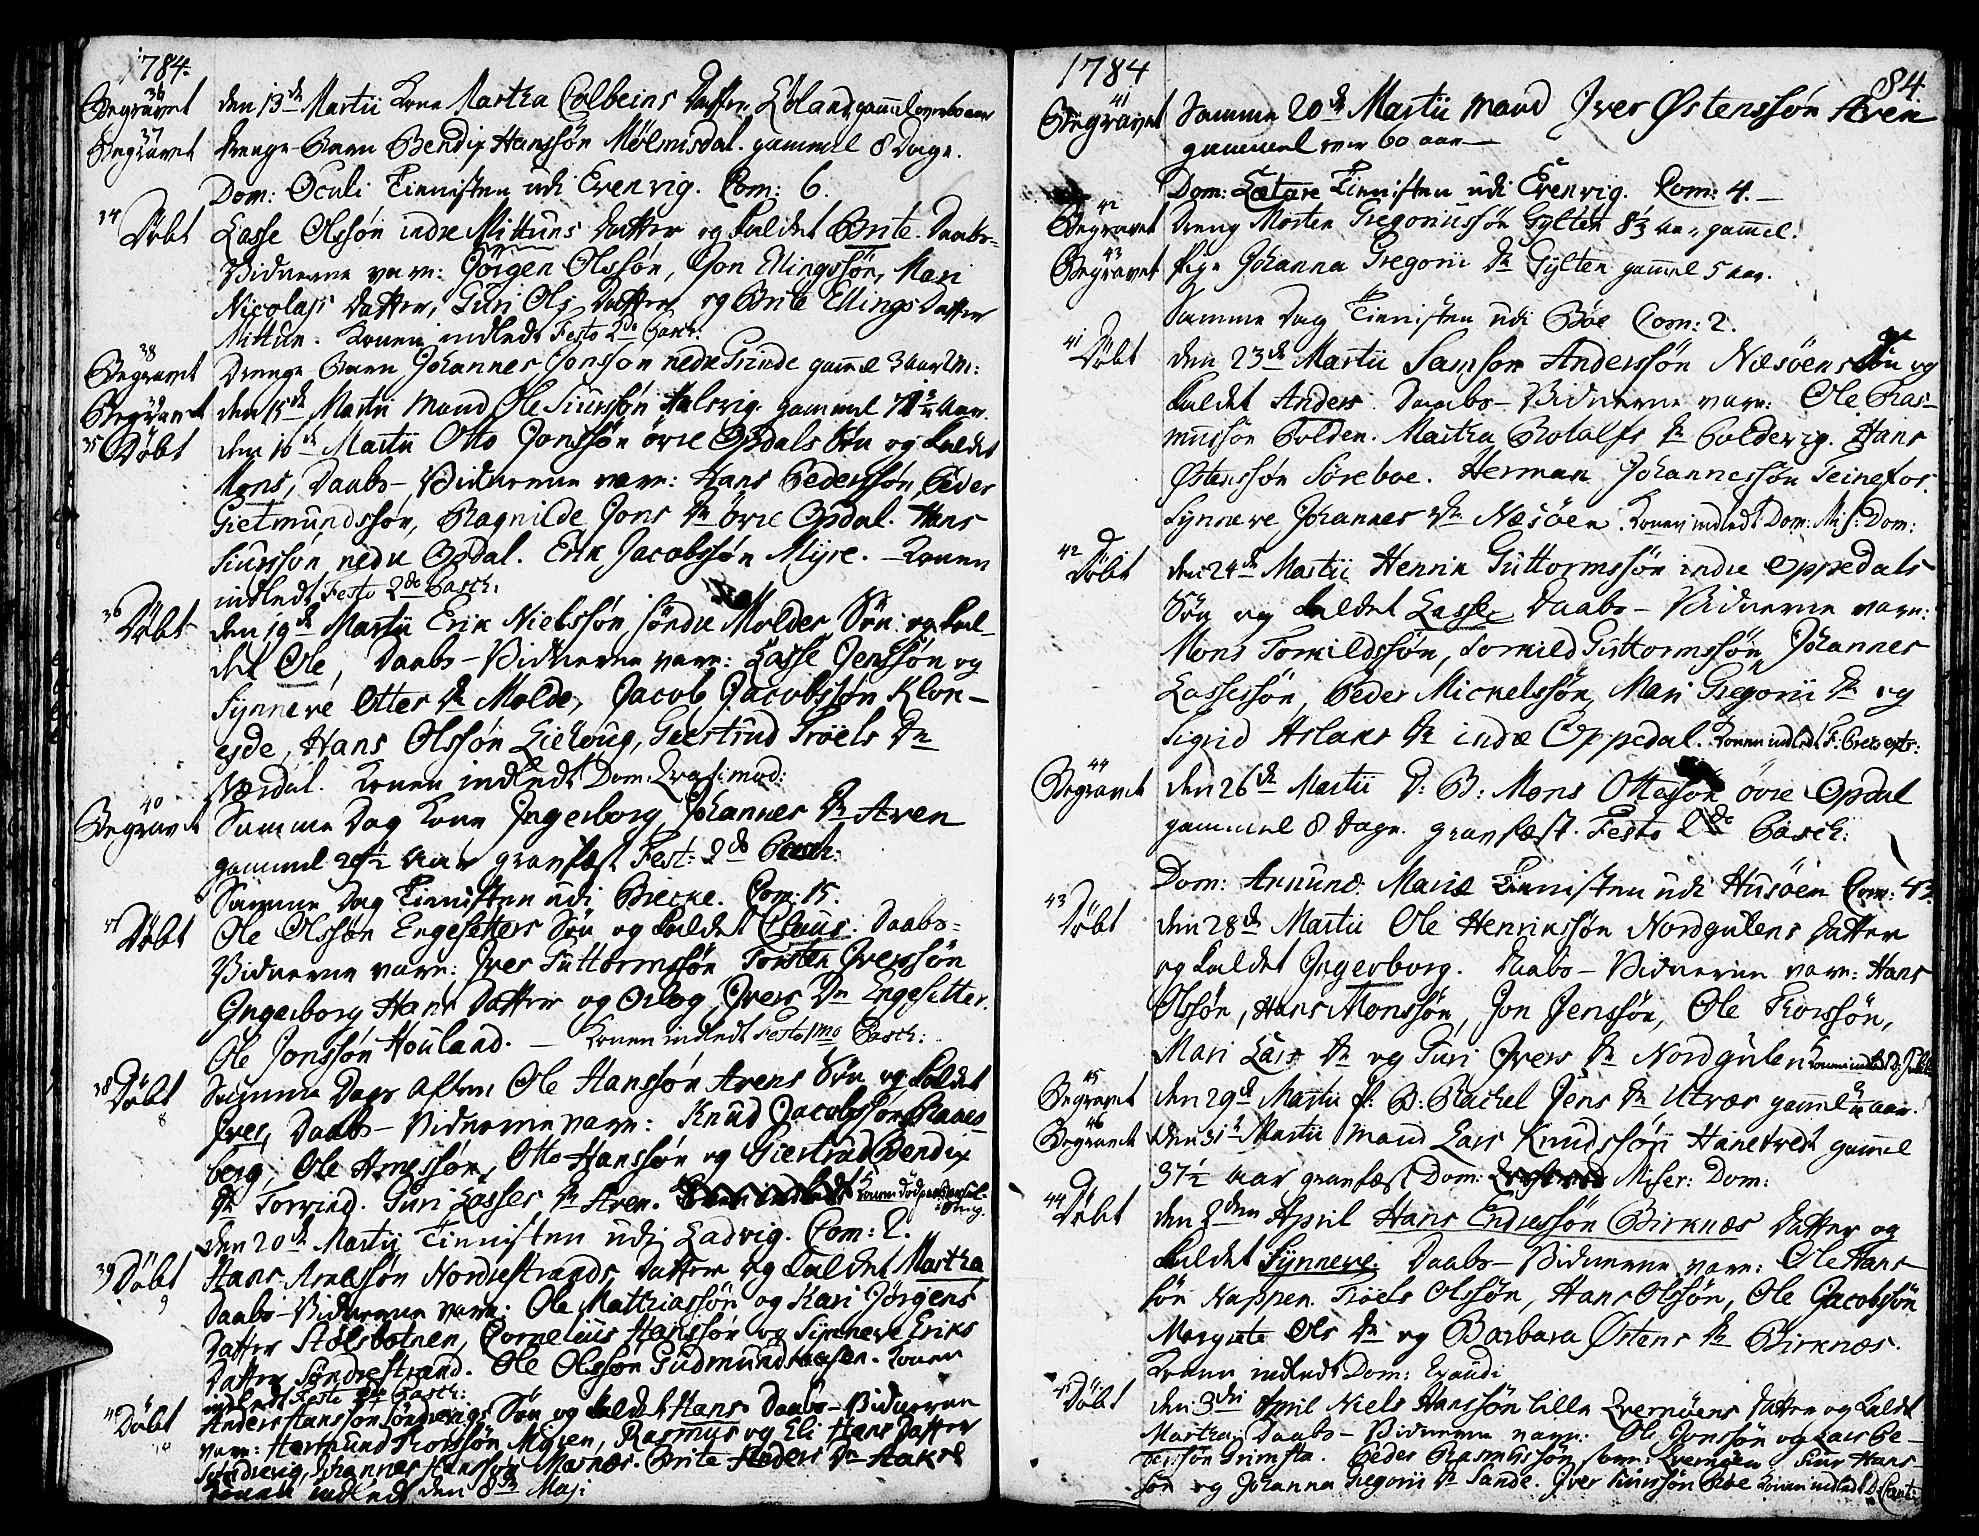 1784.
36 Begravet den 13de Martii Kone Martha Colbeins Datter Søland, gammel over 60 aar
37 Begravet Drenge Barn Bendix Hanssøn Mølmisdal. gammel 8 Dage.
Dom: Oculi Tienisten udi Evenvig. Com: 6.
34 Døbt Lasse Olssøn indre Mittuns Datter og kaldet Brite. Daabs-
Vidnerne vare: Jørgen Olssøn, Jon Ellingssøn, Mari
Nicolajs Datter, Guri Ols Datter og Brite Ellings Datter
Mittun. Konen indledt Festo 2do Pasch:
38 Begravet Drenge Barn Johannes Jonssøn nedre Grinde gam̄el 3 aar 2m:
39 Begravet den 15de Martii Mand Ole Siurssøn Halsvig gammel Aar.
35 Døbt den 16de Martii Otto Jonssøn övre Opdals Søn og kaldet
Mons, Daabs-Vidnerne vare: Hans Pederssøn, Peder
Gietmundssøn, Ragnilde Jons Dr övre Opdal. Hans
Siurssøn nedre Opdal. Erik Jacobssøn Myre. - Konen
indledt Festo 2do Pasch:
36 Døbt den 19de Martii Erik Nielssøn søndre Molder Søn og kal-
det Ole, Daabs-Vidnerne vare: Lasse Jenssøn og
Synneve Otter Dr Molde, Jacob Jacobssøn Klop-
ejde, Hans Olssøn Lieloug, Giertrud Troels Dr
Næsdal. Konen indledt Dom: Qvasimod:
40 Begravet Samme Dag Kone Ingerborg Johannes Dr Aven
gammel 28½ Aar granfæst Fest: 2do Pasch:
Samme Dag Tienisten udi Brecke. Com: 15.
37 Døbt Ole Olssøn Engesetters Søn og kaldet Claus. Daabs-
Vidnerne vare: Iver Guttormssøn Torsten Iverssøn
Ingerborg Hans Datter og Orlog Ivers Dr Engesetter.
Ole Jonssøn Houland. - Konen indledt Festo 1mo Pasch:
38 Døbt Samme Dags Aften Ole Hanssøn Avens Søn og kaldet
8 Iver, Daabs-Vidnerne vare: Knud Jacobssøn
berg, Ole Arnessøn, Otto Hanssøn og Giertrud Bendix
Dr Torvind. Guri Lasses Dr Aven. Konen død
den 20de Martii Tienisten udi Ladvig. Com: 2.
39 Døbt Hans Arnessøn Nordrestrands Datter og kaldet Martha
9 Daabs-Vidnerne vare: Ole Matthiassøn og Kari Jørgens
Datter Stølsbotnen, Cornelius Hanssøn og Synneve Eriks
Datter Søndrestrand. Ole Olssøn Gudmund. Konen
indledt Festo Pasch:
40 Døbt Anders Hanssøn Søndrevigs Søn og kaldet Hans. Daabs-Vidnerne
10 vare: Hartmund Thorssøn Myren, Rasmus og Eli Hans Datter
Søndrevig, Johannes Hanssøn Masnæs. Brite Peders Dr Aakre
Konen indledt den 8de Maj:
1784 84.
41 Begravet Samme 20de Martii Mand Iver Østenssøn Aven
gammel over 60 aar -
Dom: Lætare Tienisten udi Evenvig. Com: 4. -
42 Begravet Dreng Morten Gregoriussøn Gylten 8½ Aar gam̄el.
43 Begravet Pige Johanna Gregorii Dr Gylten gam̄el 5 aar.
Samme Dag Tienisten udi Böe Com: 2.
41 Døbt den 23de Martii Samson Anderssøn Næsöens Søn og
kaldet Anders. Daabs-Vidnerne vare: Ole Ras-
mussøn Polden. Martha Rotalfs Dr Poldevig. Hans
Østenssøn Söreboe. Herman Johannessøn Teinefos.
Synneve Johannes Dr Næsöen. Konen indledt Dom: Mis: Dom:
42 Døbt den 24de Martii Henrik Guttormssøn indre Oppedals
Søn og kaldet Lasse, Daabs-Vidnerne vare:
Mons Tomildssøn, Tomild Guttormssøn, Johannes
Lassessøn, Peder Mickelssøn, Mari Gregorii Dr og
Sigrid Aslaks Dr indre Oppedal. Konen indledt F:
44 Begravet den 26de Martii D: B: Mons Ottossøn övre Opdal
gammel 8 Dage. granfæst. Festo 2do Pasch:
Dom: Annunc: Mariæ Tienisten udi Husöen Com: 43.
43 Døbt den 28de Martii Ole Henrikssøn Nordgulens Datter
og kaldet Ingerborg. Daabs-Vidnerne vare: Hans
Olssøn, Hans Monssøn, Jon Jenssøn, Ole Thorssøn,
Mari Lars Dr og Guri Ivers Dr Nordgulen
45 Begravet den 29de Martii P: B: Rachel Jens Dr Utvær gam̄el aar.
46 Begravet den 31te Martii Mand Lars Knudssøn Hanetvedt gam̄el
37½ Aar granfæst Dom: Miser: Dom:
44 Døbt den 2den April Hans Endressøn Birknæs Datter og
kaldet Synneve. Daabs-Vidnerne vare: Ole Hans-
søn Nappen. Troels Olssøn, Hans Olssøn, Ole Jacobssøn
Margrete Ols Dr og Barbara Østens Dr Birknæs.
Konen indledt Dom: Exaudi
45 Døbt den 3die April Niels Hanssøn Lille Qvernöens Datter og kaldet
Martha. Daabs-Vidnerne vare: Ole Jonssøn og Lars Pe-
derssøn Grimsta. Peder Rasmussøn store Qvernöen Siur Hans-
søn og Johanna Gregorii Dr Sande. Iver Siurssøn Böe Konen indledt D: Cant: